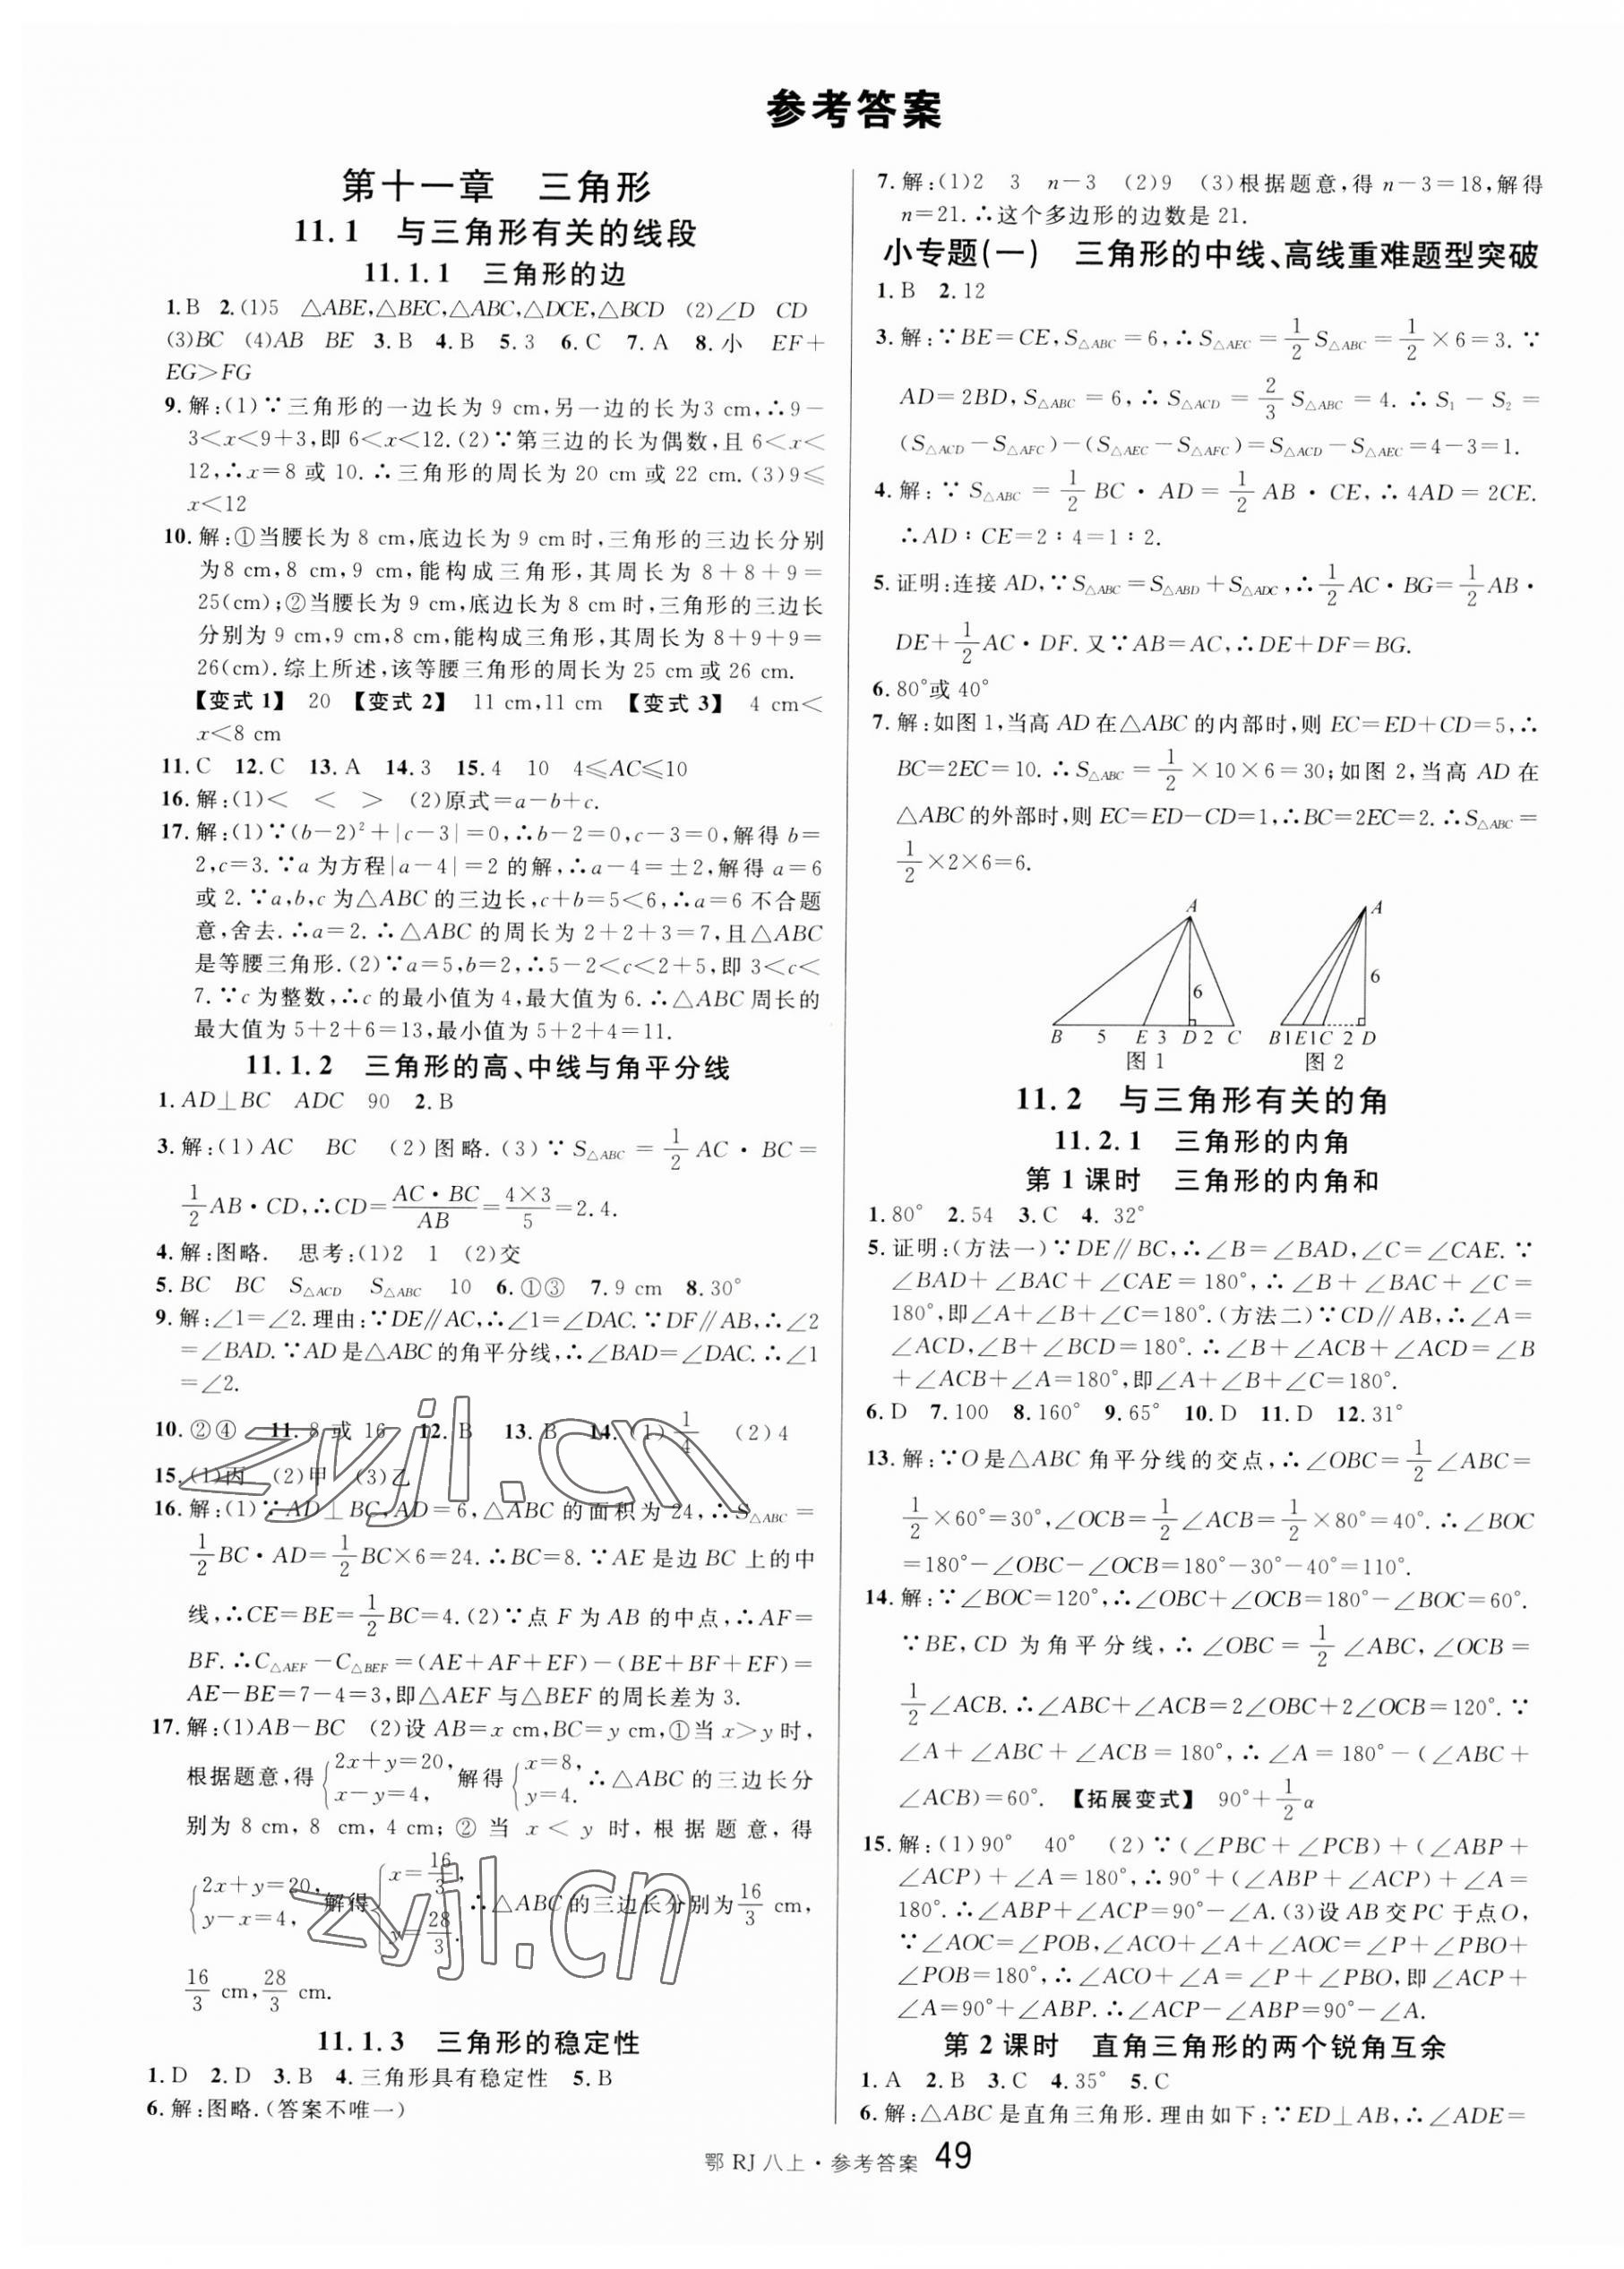 参考答案
第十一章 三角形
11.1 与三角形有关的线段
11.1.1 三角形的边
1.B 2.(1)5 △ABE,△BEC,△ABC,△DCE,△BCD (2)∠D CD
(3)BC (4)AB BE 3.B 4.B 5.3 6.C 7.A 8.小 EF+
EG>FG
9.解:(1)∵三角形的一边长为9 cm,另一边的长为3 cm,∴9-
3<x<9+3,即6<x<12.(2)∵第三边的长为偶数,且6<x<
12,∴x=8或10.∴三角形的周长为20 cm或22 cm.(3)9≤
x<12
10.解:①当腰长为8 cm,底边长为9 cm时,三角形的三边长分别
为8 cm,8 cm,9 cm,能构成三角形,其周长为8+8+9=
25(cm);②当腰长为9 cm,底边长为8 cm时,三角形的三边长
分别为9 cm,9 cm,8 cm,能构成三角形,其周长为8+9+9=
26(cm).综上所述,该等腰三角形的周长为25 cm或26 cm.
【变式1】 20 【变式2】 11 cm,11 cm 【变式3】 4 cm<
x<8 cm
11.C 12.C 13.A 14.3 15.4 10 4≤AC≤10
16.解:(1)< < > (2)原式=a-b+c.
17.解:(1)∵(b-2)²+|c-3|=0,∴b-2=0,c-3=0,解得b=
2,c=3.∵a为方程|a-4|=2的解,∴a-4=±2,解得a=6
或2.∵a,b,c为△ABC的三边长,c+b=5<6,∴a=6不合题
意,舍去.∴a=2.∴△ABC的周长为2+2+3=7,且△ABC
是等腰三角形.(2)∵a=5,b=2,∴5-2<c<2+5,即3<c<
7.∵c为整数,∴c的最小值为4,最大值为6.∴△ABC周长的
最大值为5+2+6=13,最小值为5+2+4=11.
11.1.2 三角形的高、中线与角平分线
1.AD⊥BC ADC 90 2.B
3.解:(1)AC BC (2)图略.(3)∵S△ABC=1/2 AC·BC=
1/2 AB·CD,∴CD=AC·BC/AB=4×3/5=2.4.
4.解:图略. 思考:(1)2 1 (2)交
5.BC BC S△ACD S△ABC 10 6.①③ 7.9 cm 8.30°
9.解:∠1=∠2.理由:∵DE∥AC,∴∠1=∠DAC.∵DF∥AB,∴∠2
=∠BAD.∵AD是△ABC的角平分线,∴∠BAD=∠DAC.∴∠1
=∠2.
10.②④ 11.8或16 12.B 13.B 14.(1)1/4 (2)4
15.(1)丙 (2)甲 (3)乙
16.解:(1)∵AD⊥BC,AD=6,△ABC的面积为24,∴S△ABC=
1/2 BC·AD=1/2 BC×6=24.∴BC=8.∵AE是边BC上的中
线,∴CE=BE=1/2 BC=4.(2)∵点F为AB的中点,∴AF=
BF.∴C△AEF-C△BEF=(AE+AF+EF)-(BE+BF+EF)=
AE-BE=7-4=3,即△AEF与△BEF的周长差为3.
17.解:(1)AB-BC (2)设AB=x cm,BC=y cm,①当x>y时,
根据题意,得{2x+y=20, x-y=4, 解得{x=8, y=4. ∴△ABC的三边长分
别为8 cm,8 cm,4 cm;②当x<y时,根据题意,得
{2x+y=20, y-x=4, 解得{x=16/3, y=28/3. ∴△ABC的三边长分别为16/3 cm,
16/3 cm,28/3 cm.
11.1.3 三角形的稳定性
1.D 2.D 3.B 4.三角形具有稳定性 5.B
6.解:图略.(答案不唯一)
7.解:(1)2 3 n-3 (2)9 (3)根据题意,得n-3=18,解得
n=21.∴这个多边形的边数是21.
小专题(一) 三角形的中线、高线重难题型突破
1.B 2.12
3.解:∵BE=CE,S△ABC=6,∴S△AEC=1/2 S△ABC=1/2×6=3.∵
AD=2BD,S△ABC=6,∴S△ACD=2/3 S△ABC=4.∴S₁-S₂=
(S△ACD-S△AFC)-(S△AEC-S△AFC)=S△ACD-S△AEC=4-3=1.
4.解:∵S△ABC=1/2 BC·AD=1/2 AB·CE,∴4AD=2CE.
∴AD∶CE=2∶4=1∶2.
5.证明:连接AD,∵S△ABC=S△ABD+S△ADC,∴1/2 AC·BG=1/2 AB·
DE+1/2 AC·DF.又∵AB=AC,∴DE+DF=BG.
6.80°或40°
7.解:如图1,当高AD在△ABC的内部时,则EC=ED+CD=5,∴
BC=2EC=10.∴S△ABC=1/2×10×6=30;如图2,当高AD在
△ABC的外部时,则EC=ED-CD=1,∴BC=2EC=2.∴S△ABC=
1/2×2×6=6.
A
6
B 5 E 3 D 2 C
图1
A
6
B1E1C 2 D
图2
11.2 与三角形有关的角
11.2.1 三角形的内角
第1课时 三角形的内角和
1.80° 2.54 3.C 4.32°
5.证明:(方法一)∵DE∥BC,∴∠B=∠BAD,∠C=∠CAE.∵
∠BAD+∠BAC+∠CAE=180°,∴∠B+∠BAC+∠C=
180°,即∠A+∠B+∠C=180°.(方法二)∵CD∥AB,∴∠A=
∠ACD,∠B+∠BCD=180°.∴∠B+∠ACB+∠ACD=∠B
+∠ACB+∠A=180°,即∠A+∠B+∠C=180°.
6.D 7.100 8.160° 9.65° 10.D 11.D 12.31°
13.解:∵O是△ABC角平分线的交点,∴∠OBC=1/2∠ABC=
1/2×60°=30°,∠OCB=1/2∠ACB=1/2×80°=40°.∴∠BOC
=180°-∠OBC-∠OCB=180°-30°-40°=110°.
14.解:∵∠BOC=120°,∴∠OBC+∠OCB=180°-∠BOC=60°.
∵BE,CD为角平分线,∴∠OBC=1/2∠ABC,∠OCB=
1/2∠ACB.∴∠ABC+∠ACB=2∠OBC+2∠OCB=120°.∵
∠A+∠ABC+∠ACB=180°,∴∠A=180°-(∠ABC+
∠ACB)=60°. 【拓展变式】 90°+1/2α
15.解:(1)90° 40° (2)∵(∠PBC+∠PCB)+(∠ABP+
∠ACP)+∠A=180°,∴90°+(∠ABP+∠ACP)+∠A=
180°.∴∠ABP+∠ACP=90°-∠A.(3)设AB交PC于点O,
∵∠AOC=∠POB,∠ACO+∠A+∠AOC=∠P+∠PBO+
∠POB=180°,∴∠ACO+∠A=∠P+∠PBO,即∠ACP+
∠A=90°+∠ABP.∴∠ACP-∠ABP=90°-∠A.
第2课时 直角三角形的两个锐角互余
1.A 2.B 3.C 4.35° 5.C
6.解:△ABC是直角三角形.理由如下:∵ED⊥AB,∴∠ADE=
鄂 RJ 八上·参考答案 49
zyjl.cn
zyjl.cn